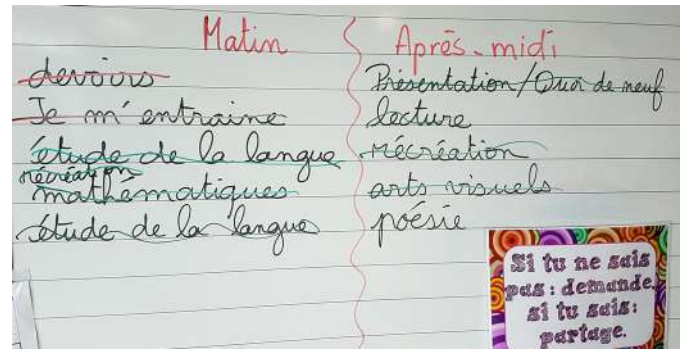 Matin
devoirs
Je m'entraine
étude de la langue
récréation
mathématiques
étude de la langue
Après-midi
Présentation/Quoi de neuf
lecture
récréation
arts visuels
poésie
Si tu ne sais
pas : demande,
si tu sais :
partage.